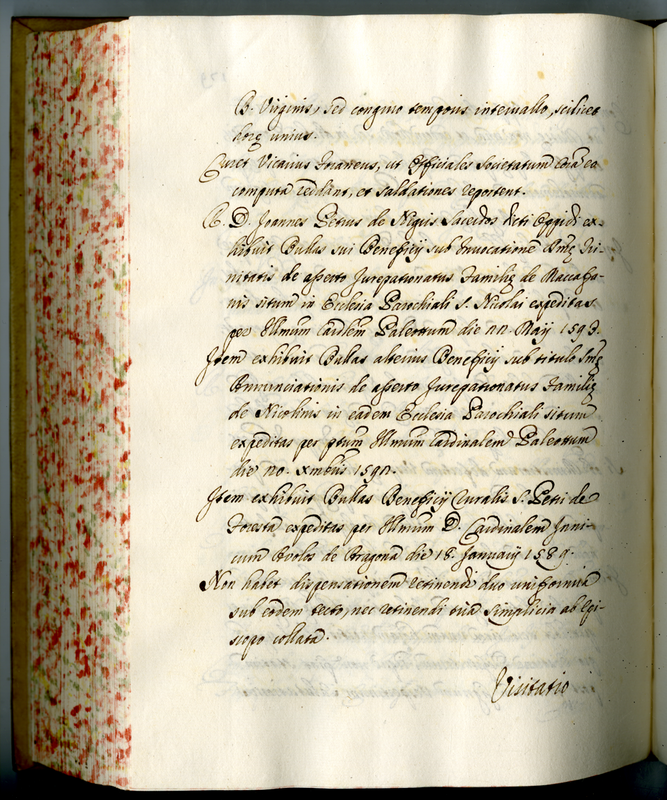 B. Virginis, sed congruo temporis interuallo, scilicet
horę unius.
Curet Vicarius foraneus, ut Officiales Societatum
computa reddant, et saldationes reportent.
R. D. Joannes Petrus de Nigris Sacerdos dicti Oppidi ex-
hibuit Bullas sui Beneficij sub Inuocatione Smę Tri-
nitatis de asserto Jurepationatus Familię de Maccafa-
nis situm in Ecclesia Parochiali S. Nicolai expeditas
per Illmum Cardlem Paleottum die Maij 1593.
Item exhibuit Bullas alterius Beneficij sub titulo Smę
Annunciationis de asserto Jurepationatus Familię
de Nicolinis in eadem Ecclesia Parochiali situm
expeditas per ptum Illmum Cardinalem Paleottum
die Xmbris
Item exhibuit Bullas Beneficij Curalis S. Petri de
Foresta expeditas per Illmum D. Cardinalem Inni-
cum Aualos de Aragona die 18 Januarij 1589.
Non habet dispensationem retinendi duo uniformia
sub eodem tecto, nec retinendi tria simplicia ab Epi-
scopo collata.
Visitatio